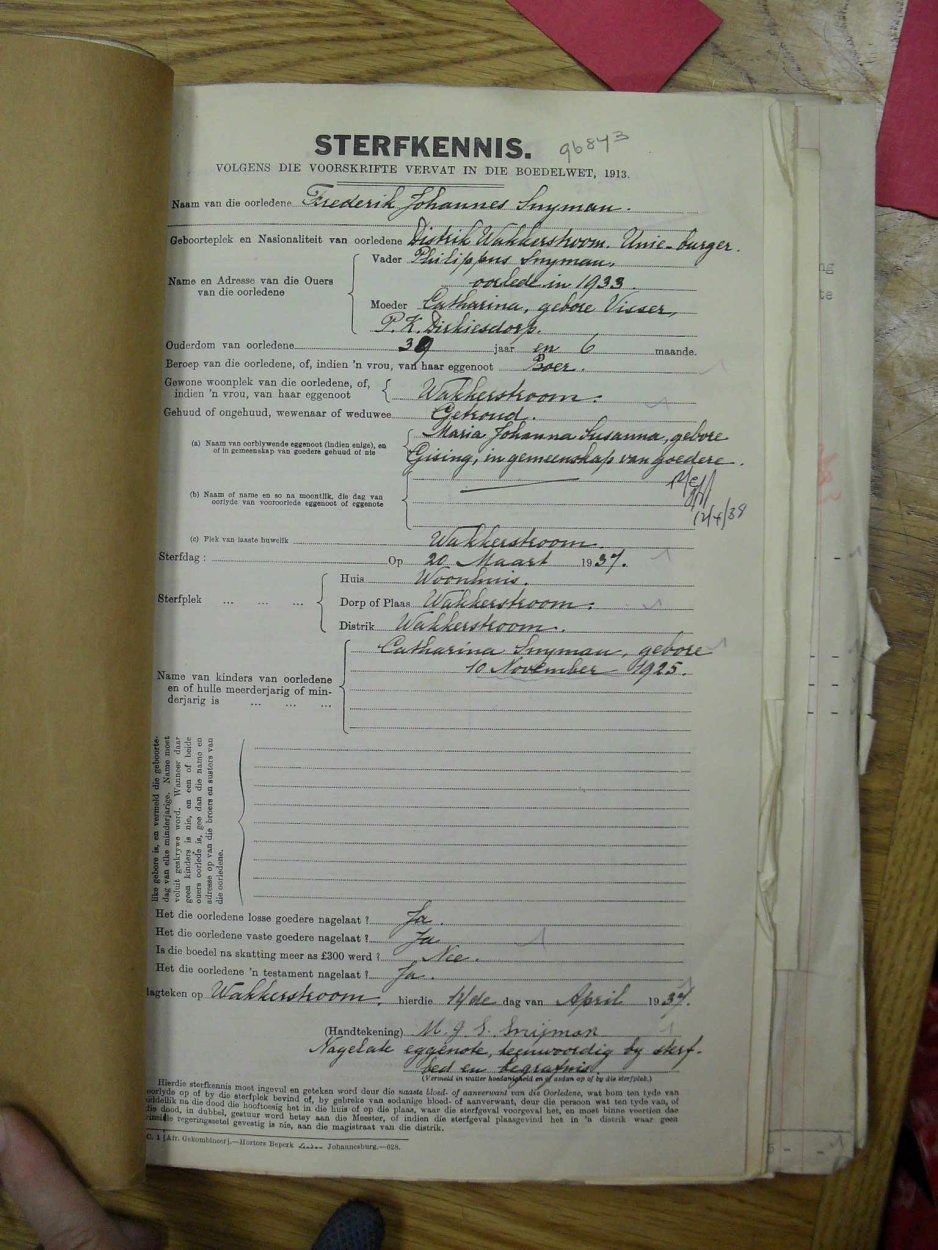 STERFKENNIS. 96843
VOLGENS DIE VOORSKRIFTE VERVAT IN DIE BOEDELWET, 1913.
Naam van die oorledene Frederik Johannes Snyman.
Geboorteplek en Nasionaliteit van oorledene Distrik Wakkerstroom. Unie-burger.
Name en Adresse van die Ouers van die oorledene
Vader Philippus Snyman,
oorlede in 1933
Moeder Catharina, gebore Visser,
P.K. Dirkiesdorp.
Ouderdom van oorledene 39 jaar en 6 maande.
Beroep van die oorledene, of, indien 'n vrou, van haar eggenoot Boer.
Gewone woonplek van die oorledene, of,
indien 'n vrou, van haar eggenoot Wakkerstroom.
Gehuud of ongehuud, wewenaar of weduwee Getroud.
(a) Naam van oorblywende eggenoot (indien enige), en
of in gemeenskap van goedere gehuud of nie
Maria Johanna Susanna, gebore
Gising, in gemeenskap van goedere.
(b) Naam of name en so na moontlik, die dag van
oorlyde van vooroorlede eggenoot of eggenote
12/4/38
(c) Plek van laaste huwelik Wakkerstroom
Sterfdag : Op 20 Maart 1937.
Sterfplek ... ... ...
Huis Woonhuis.
Dorp of Plaas Wakkerstroom.
Distrik Wakkerstroom.
Name van kinders van oorledene
en of hulle meerderjarig of min-
derjarig is ... ... ...
Catharina Snyman, gebore
10 November 1925.
like gebore is, en vermeld die geboorte-
dag van elke minderjarige. Name moet
voluit geskrywe word. Wanneer daar
geen kinders is nie, en een of beide
ouers oorlede is, gee dan die name en
adresse op van die broers en susters van
die oorledene.
Het die oorledene losse goedere nagelaat ? Ja.
Het die oorledene vaste goedere nagelaat ? Ja
Is die boedel na skatting meer as £300 werd ? Nee.
Het die oorledene 'n testament nagelaat ? Ja.
agteken op Wakkerstroom. hierdie 14de dag van April 1937.
(Handtekening) M. J. S. Snijman
Nagelate eggenote, teenwoordig by sterf-
bed en begrafnis
(Vermeld in watter hoedanigheid en of aldan op of by die sterfplek.)
Hierdie sterfkennis moet ingevul en geteken word deur die naaste bloed- of aanverwant van die Oorledene, wat hom ten tyde van
oorlyde op of by die sterfplek bevind of, by gebreke van sodanige bloed- of aanverwant, deur die persoon wat ten tyde van, of
iddellik na die dood die hooftoesig het in die huis of op die plaas, waar die sterfgeval voorgeval het, en moet binne veertien dae
die dood, in dubbel, gestuur word hetsy aan die Meester, of indien die sterfgeval plaasgevind het in 'n distrik waar geen
regeringssetel gevestig is nie, aan die magistraat van die distrik.
C. 1 [Afr. Gekombineer].—Hortors Beperk Johannesburg.—628.